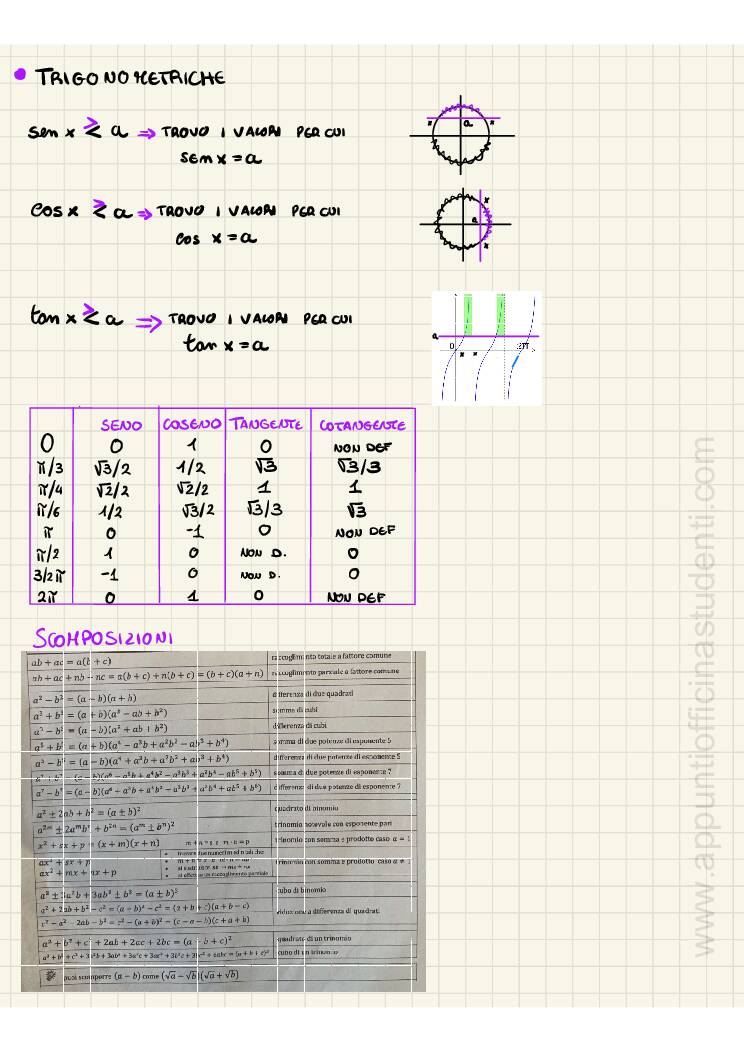 TRIGONOMETRICHE
sen x ≷ a ⇒ TROVO I VALORI PER CUI
sen x = a
a
x x
cos x ≷ a ⇒ TROVO I VALORI PER CUI
cos x = a
a
x
x
tan x ≷ a ⇒ TROVO I VALORI PER CUI
tan x = a
a
0 x x 2π
SENO COSENO TANGENTE COTANGENTE
0 0 1 0 NON DEF
π/3 √3/2 1/2 √3 √3/3
π/4 √2/2 √2/2 1 1
π/6 1/2 √3/2 √3/3 √3
π 0 -1 0 NON DEF
π/2 1 0 NON D. 0
3/2π -1 0 NON D. 0
2π 0 1 0 NON DEF
SCOMPOSIZIONI
ab + ac = a(b + c) raccoglimento totale a fattore comune
ab + ac + nb + nc = a(b + c) + n(b + c) = (b + c)(a + n) raccoglimento parziale a fattore comune
a² − b² = (a − b)(a + b) differenza di due quadrati
a³ + b³ = (a + b)(a² − ab + b²) somma di cubi
a³ − b³ = (a − b)(a² + ab + b²) differenza di cubi
a⁵ + b⁵ = (a + b)(a⁴ − a³b + a²b² − ab³ + b⁴) somma di due potenze di esponente 5
a⁵ − b⁵ = (a − b)(a⁴ + a³b + a²b² + ab³ + b⁴) differenza di due potenze di esponente 5
somma di due potenze di esponente 7
differenza di due potenze di esponente 7
a² ± 2ab + b² = (a ± b)² quadrato di binomio
trinomio notevole con esponente pari
x² + sx + p = (x + m)(x + n) m + n = s e m · n = p trinomio con somma e prodotto caso a = 1
ax² + sx + p trovare due numeri m ed n tali che
ax² + mx + nx + p trinomio con somma e prodotto caso a ≠ 1
si effettua un raccoglimento parziale
a³ ± 3a²b + 3ab² ± b³ = (a ± b)³ cubo di binomio
a² + 2ab + b² − c² = (a + b)² − c² = (a + b + c)(a + b − c)
riduzione a differenza di quadrati
c² − a² − 2ab − b² = c² − (a + b)² = (c − a − b)(c + a + b)
a² + b² + c² + 2ab + 2ac + 2bc = (a + b + c)² quadrato di un trinomio
a³ + b³ + c³ + 3a²b + 3ab² + 3a²c + 3ac² + 3b²c + 3bc² + 6abc = (a + b + c)³ cubo di un trinomio
puoi scomporre (a − b) come (√a − √b)(√a + √b)
www.appuntiofficinastudenti.com